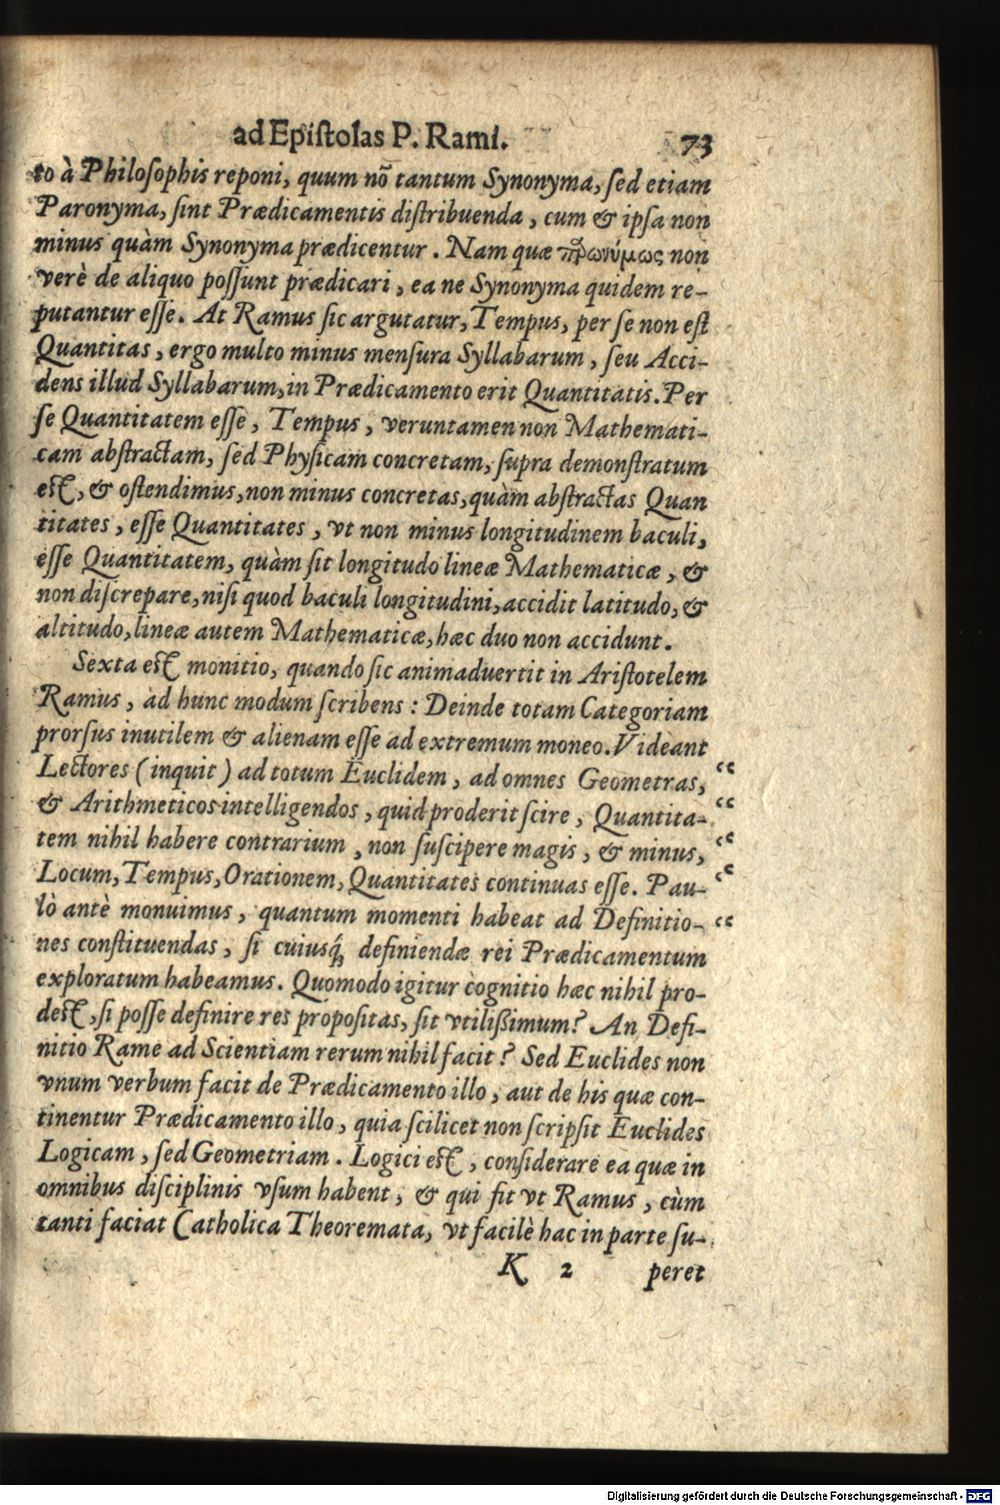 ad Epiſtolas P. Rami. 73
to à Philoſophis reponi, quum nō tantum Synonyma, ſed etiam
Paronyma, ſint Prædicamentis diſtribuenda, cum & ipſa non
minus quàm Synonyma prædicentur. Nam quæ non
verè de aliquo poſſunt prædicari, ea ne Synonyma quidem re-
putantur eſſe. At Ramus ſic argutatur, Tempus, per ſe non eſt
Quantitas, ergo multo minus menſura Syllabarum, ſeu Acci-
dens illud Syllabarum, in Prædicamento erit Quantitatis. Per
ſe Quantitatem eſſe, Tempus, veruntamen non Mathemati-
cam abſtractam, ſed Phyſicam concretam, ſupra demonſtratum
eſt, & oſtendimus, non minus concretas, quàm abſtractas Quan
titates, eſſe Quantitates, vt non minus longitudinem baculi,
eſſe Quantitatem, quàm ſit longitudo lineæ Mathematicæ, &
non diſcrepare, niſi quod baculi longitudini, accidit latitudo, &
altitudo, lineæ autem Mathematicæ, hæc duo non accidunt.
Sexta eſt monitio, quando ſic animaduertit in Ariſtotelem
Ramus, ad hunc modum ſcribens: Deinde totam Categoriam
prorſus inutilem & alienam eſſe ad extremum moneo. Videant
Lectores (inquit) ad totum Euclidem, ad omnes Geometras, “
& Arithmeticos intelligendos, quid proderit ſcire, Quantita- “
tem nihil habere contrarium, non ſuſcipere magis, & minus, “
Locum, Tempus, Orationem, Quantitates continuas eſſe. Pau- “
lò antè monuimus, quantum momenti habeat ad Definitio- “
nes conſtituendas, ſi cuiusq́; definiendæ rei Prædicamentum
exploratum habeamus. Quomodo igitur cognitio hæc nihil pro-
deſt, ſi poſſe definire res propoſitas, ſit vtiliſſimum? An Defi-
nitio Rame ad Scientiam rerum nihil facit? Sed Euclides non
vnum verbum facit de Prædicamento illo, aut de his quæ con-
tinentur Prædicamento illo, quia ſcilicet non ſcripſit Euclides
Logicam, ſed Geometriam. Logici eſt, conſiderare ea quæ in
omnibus diſciplinis vſum habent, & qui fit vt Ramus, cùm
tanti faciat Catholica Theoremata, vt facilè hac in parte ſu-
K 2 peret
Digitalisierung gefördert durch die Deutsche Forschungsgemeinschaft - DFG